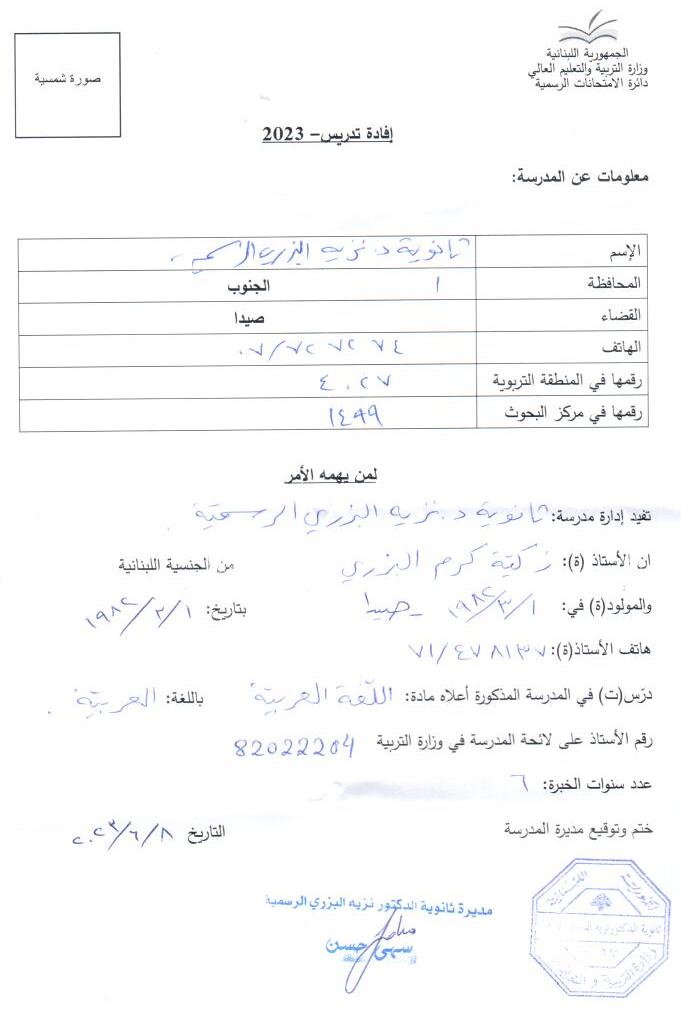 الجمهورية اللبنانية
وزارة التربية والتعليم العالي
دائرة الامتحانات الرسمية
صورة شمسية
إفادة تدريس- 2023
معلومات عن المدرسة:
الإسم ثانوية د. نزيه البزري الرسمية
المحافظة الجنوب
القضاء صيدا
الهاتف ٠٧/٧٢٧٢٧٤
رقمها في المنطقة التربوية ٤٠٢٧
رقمها في مركز البحوث ١٤٤٩
لمن يهمه الأمر
تفيد إدارة مدرسة: ثانوية د. نزيه البزري الرسمية
ان الأستاذ (ة): زكية كرم البزري من الجنسية اللبنانية
والمولود(ة) في: ١٩٨٢/٣/١ - صيدا بتاريخ: ١٩٨٢/٣/١
هاتف الأستاذ(ة): ٧١/٤٧٨١٣٧
درّس(ت) في المدرسة المذكورة أعلاه مادة: اللّغة العربيّة باللغة: العربيّة.
رقم الأستاذ على لائحة المدرسة في وزارة التربية 82022204
عدد سنوات الخبرة: ٦
ختم وتوقيع مديرة المدرسة التاريخ ٢٠٢٣/٦/٨
مديرة ثانوية الدكتور نزيه البزري الرسمية
سهى حسن
الجمهورية اللبنانية
ثانوية الدكتور نزيه البزري
وزارة التربية و التعليم